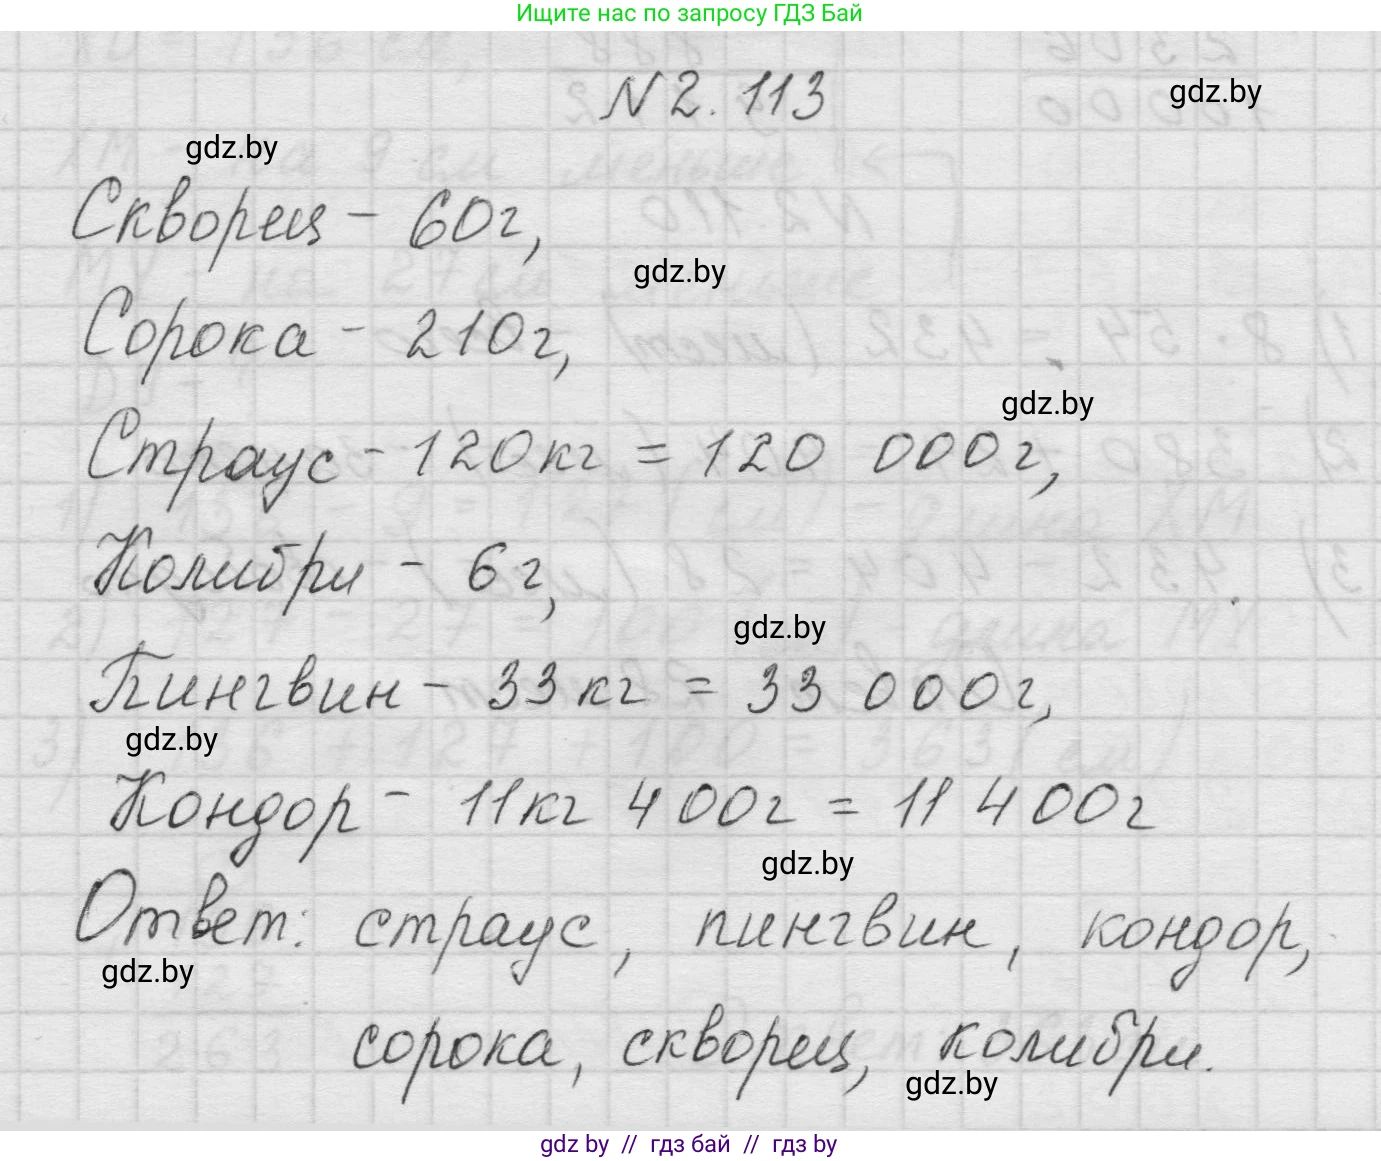 Ищите нас по запросу ГДЗ Бай
N 2. 113
gdz.by
gdz.by
Скворец - 60г,
gdz.by
Сорока - 210г,
gdz.by
Страус - 120кг = 120 000г,
Колибри - 6г,
gdz.by
Пингвин - 33кг = 33 000г,
gdz.by
Кондор - 11кг 400г = 11 400г
gdz.by
Ответ: страус, пингвин, кондор,
gdz.by
сорока, скворец, колибри.
gdz.by
gdz by // гдз бай // гдз by